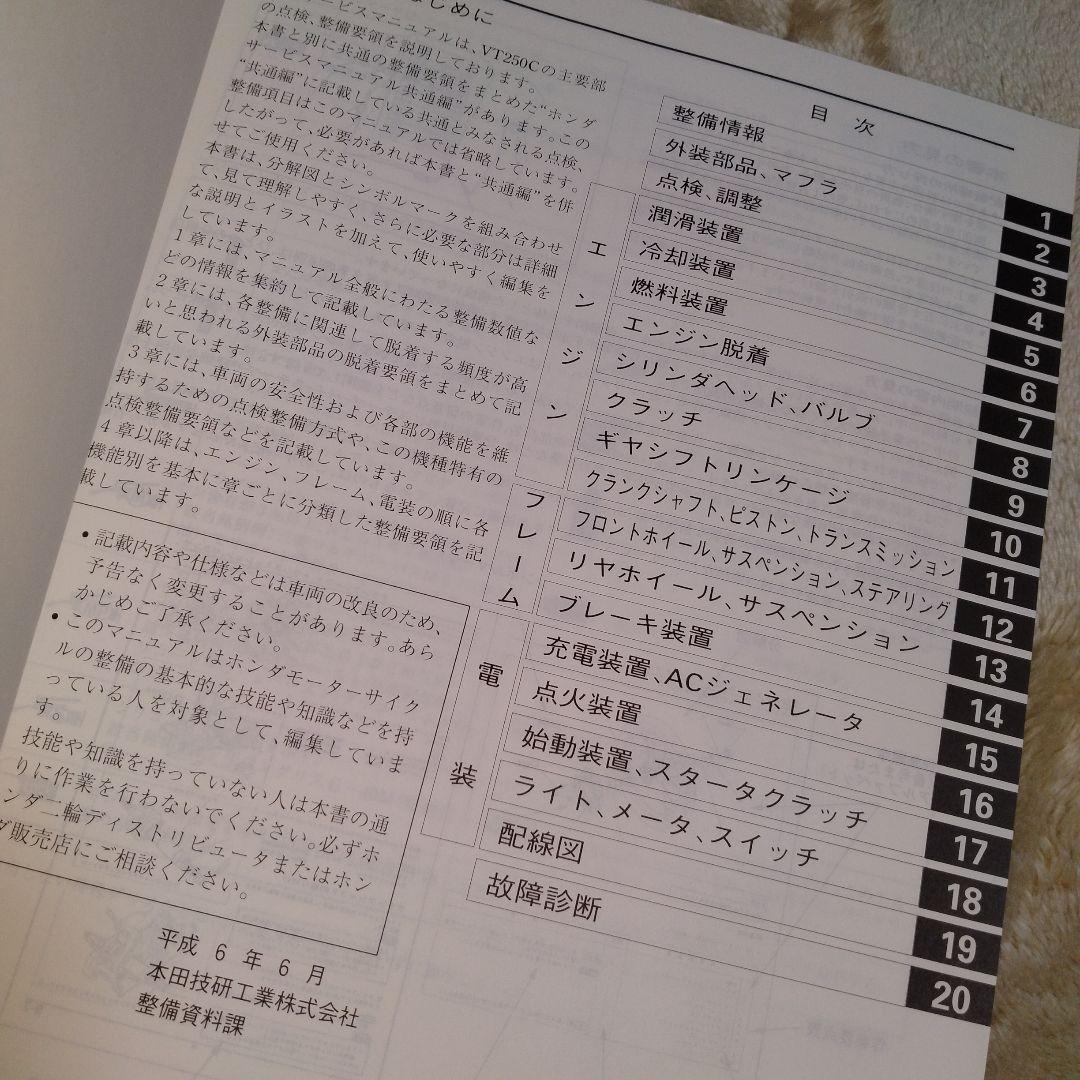 じめに
ービスマニュアルは、VT250Cの主要部
の点検、整備要領を説明しております。
本書と別に共通の整備要領をまとめた“ホンダ
サービスマニュアル共通編”があります。この
“共通編”に記載している共通とみなされる点検、
整備項目はこのマニュアルでは省略しています。
したがって、必要があれば本書と“共通編”を併
せてご使用ください。
本書は、分解図とシンボルマークを組み合わせ
て、見て理解しやすく、さらに必要な部分は詳細
な説明とイラストを加えて、使いやすく編集を
しています。
1章には、マニュアル全般にわたる整備数値な
どの情報を集約して記載しています。
2章には、各整備に関連して脱着する頻度が高
いと思われる外装部品の脱着要領をまとめて記
載しています。
3章には、車両の安全性および各部の機能を維
持するための点検整備方式や、この機種特有の
点検整備要領などを記載しています。
4章以降は、エンジン、フレーム、電装の順に各
機能別を基本に章ごとに分類した整備要領を記
載しています。
• 記載内容や仕様などは車両の改良のため、
予告なく変更することがあります。あら
かじめご了承ください。
• このマニュアルはホンダモーターサイク
ルの整備の基本的な技能や知識などを持
っている人を対象として、編集していま
す。
技能や知識を持っていない人は本書の通
りに作業を行わないでください。必ずホ
ンダ二輪ディストリビュータまたはホン
ダ販売店にご相談ください。
平成 6 年 6 月
本田技研工業株式会社
整備資料課
目 次
整備情報 1
外装部品、マフラ 2
点検、調整 3
エンジン
潤滑装置 4
冷却装置 5
燃料装置 6
エンジン脱着 7
シリンダヘッド、バルブ 8
クラッチ 9
ギヤシフトリンケージ 10
クランクシャフト、ピストン、トランスミッション 11
フレーム
フロントホイール、サスペンション、ステアリング 12
リヤホイール、サスペンション 13
ブレーキ装置 14
電装
充電装置、ACジェネレータ 15
点火装置 16
始動装置、スタータクラッチ 17
ライト、メータ、スイッチ 18
配線図 19
故障診断 20